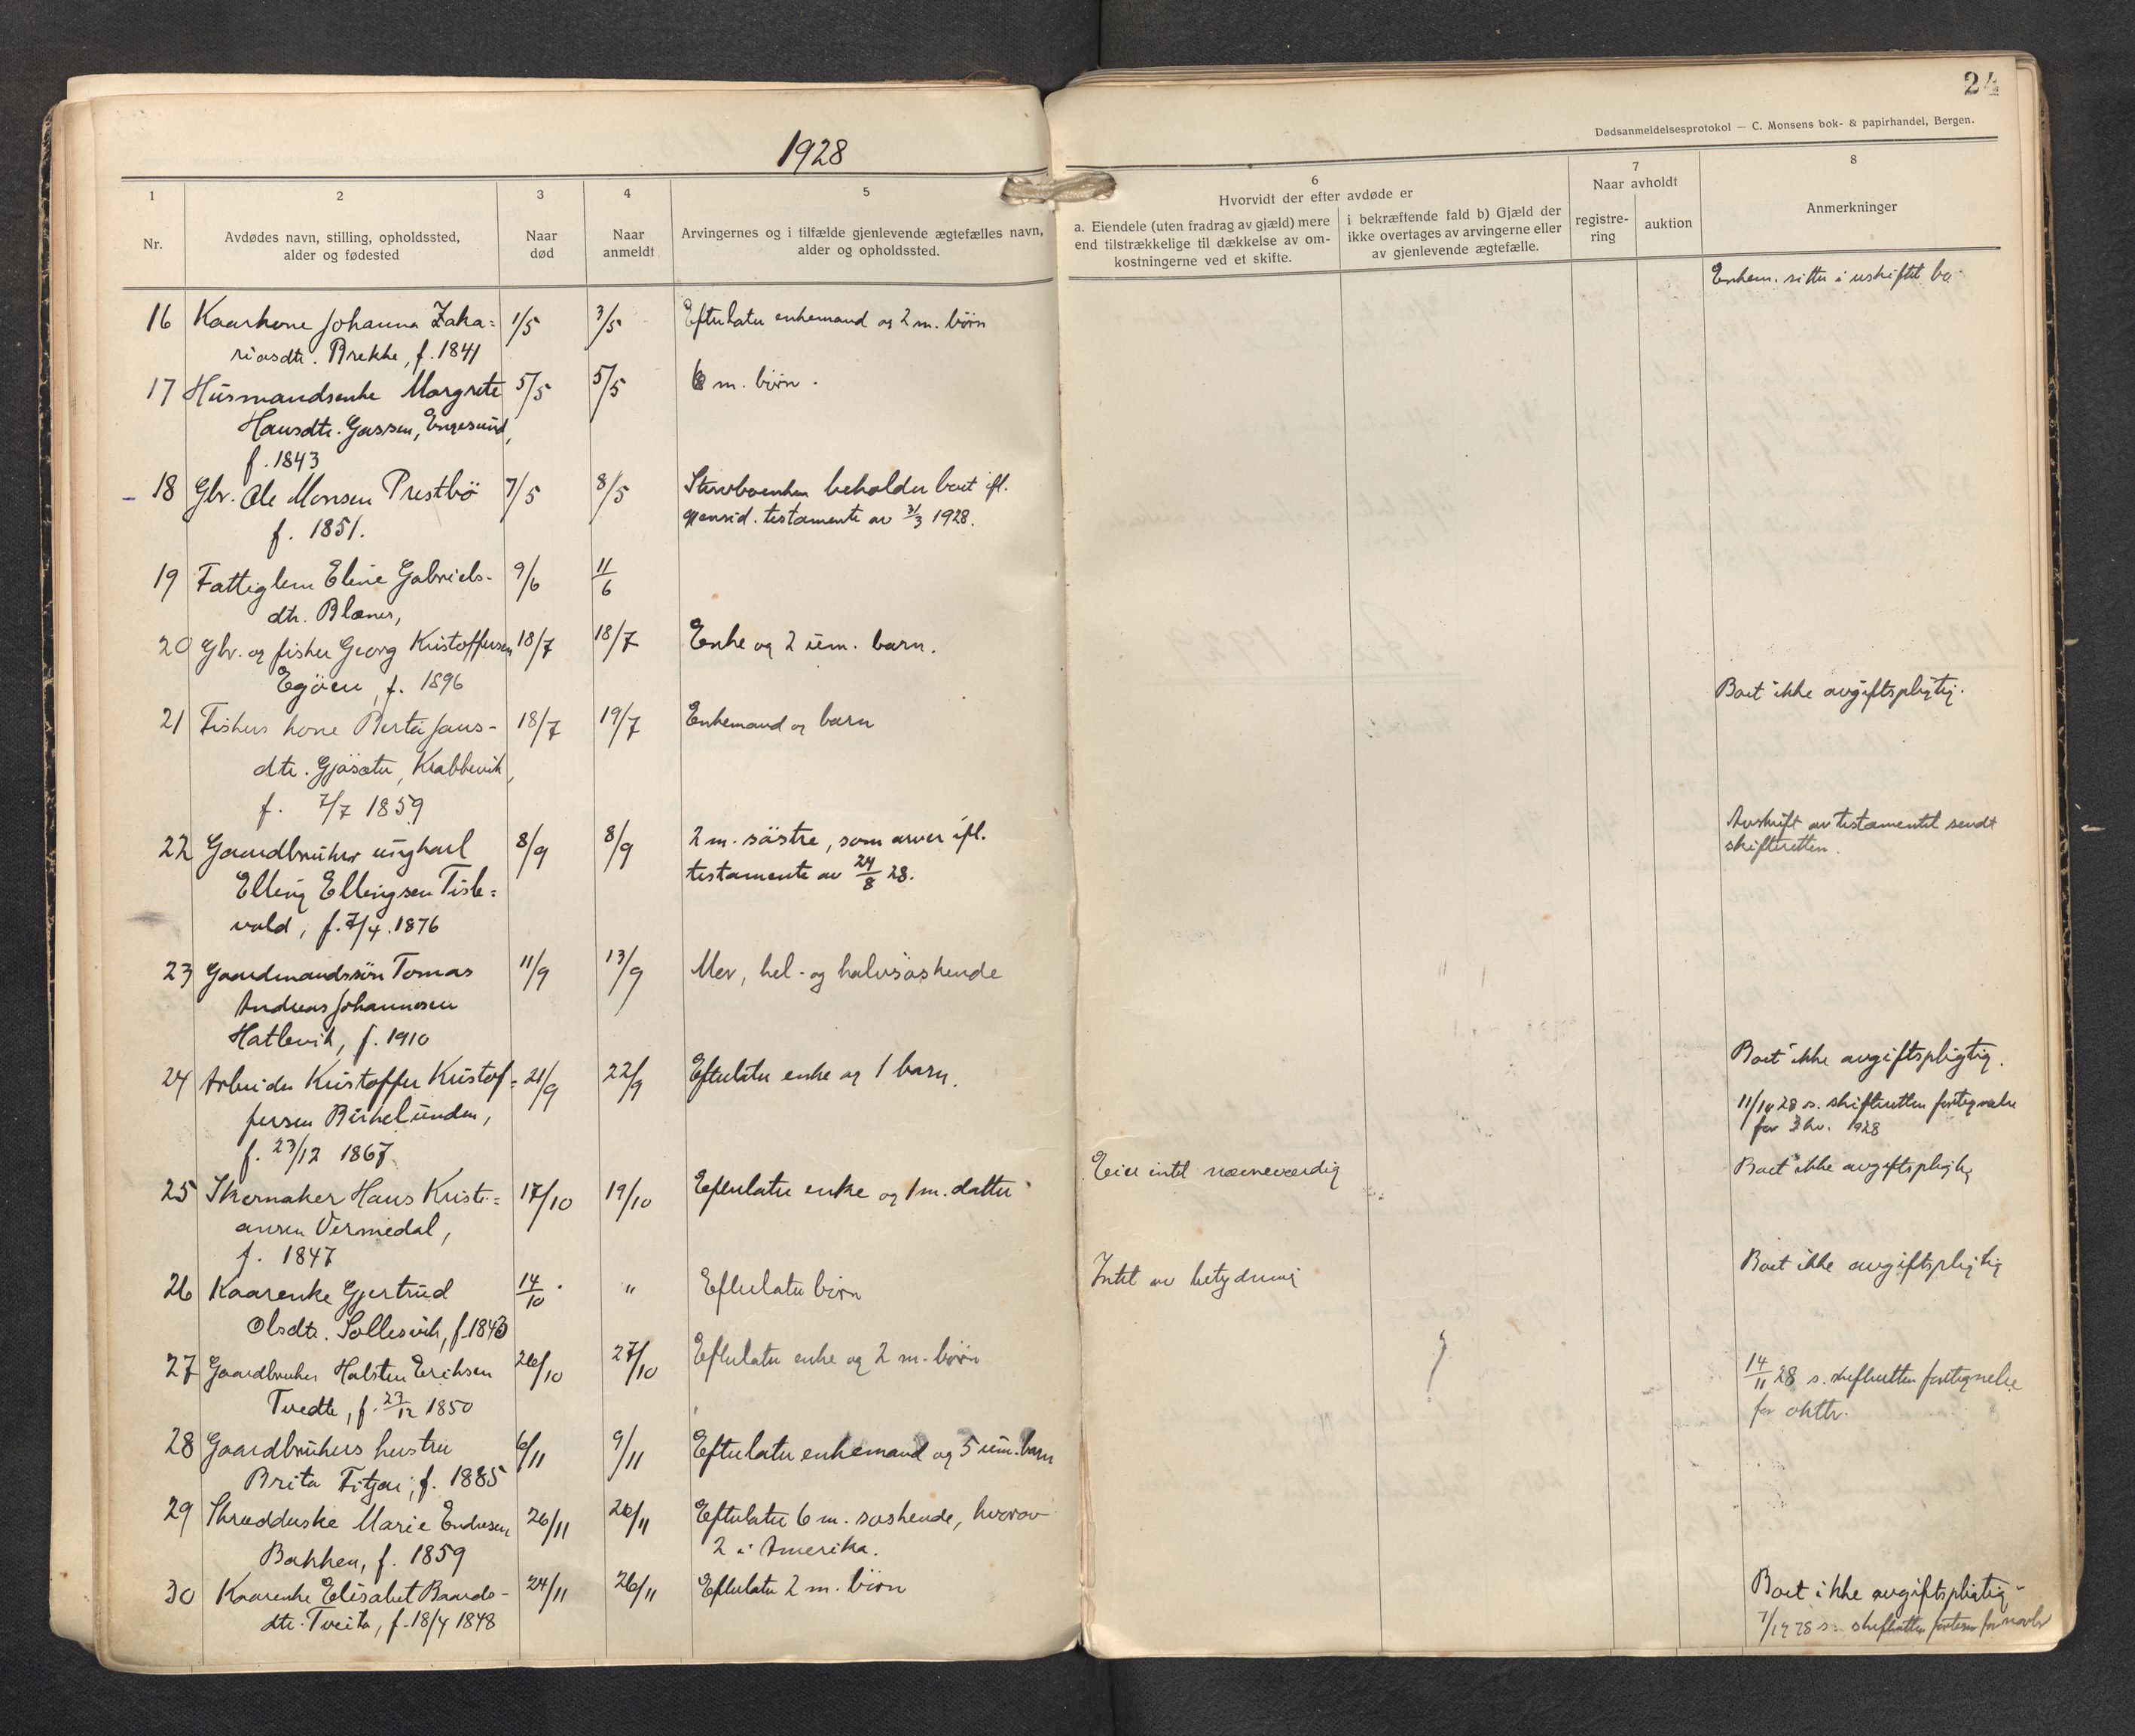 24
Dødsanmeldelsesprotokol — C. Monsens bok- & papirhandel, Bergen.
1928
1
Nr.
2
Avdødes navn, stilling, opholdssted,
alder og fødested
3
Naar
død
4
Naar
anmeldt
5
Arvingernes og i tilfælde gjenlevende ægtefælles navn,
alder og opholdssted.
6
Hvorvidt der efter avdøde er
a. Eiendele (uten fradrag av gjæld) mere
end tilstrækkelige til dækkelse av om-
kostningerne ved et skifte.
i bekræftende fald b) Gjæld der
ikke overtages av arvingerne eller
av gjenlevende ægtefælle.
7
Naar avholdt
registre-
ring
auktion
8
Anmerkninger
Enkem. sitter i uskiftet bo
16 Kaarkone Johanna Zaka= 1/5 3/5 Efterlater enkemand og 2 m. børn
riasdtr. Brekke, f. 1841
17 Husmandsenke Margrete 5/5 5/5 6 m. børn.
Hansdtr. Gassen, Engesund,
f. 1843
18 Gbr. Ole Monsen Prestbö 7/5 8/5 Stervboenken beholder boet ifl.
f. 1851. gjensid. testamente av 31/3 1928.
19 Fattiglem Eline Gabriels- 9/6 11/6
dtr. Blænes,
20 Gbr. og fisker Georg Kristoffersen 18/7 18/7 Enke og 2 um. barn.
Egöen, f. 1896 Boet ikke avgiftspligtig.
21 Fiskers kone Berta Jans- 18/7 19/7 Enkemand og barn
dtr. Gjøsæter, Krabbevik,
f. 7/7 1859
22 Gaardbruker ungkarl 8/9 8/9 2 m. söstre, som arver ifl. Avskrift av testamentet sendt
Elling Ellingsen Tisle= testamente av 24/8 28. skifteretten.
vold, f. 7/4. 1876
23 Gaardmandssön Tomas 11/9 13/9 Mor, hel- og halvsöskende
Andreas Johannesen
Hatlevik, f. 1910
24 Arbeider Kristoffer Kristof= 21/9 22/9 Efterlater enke og 1 barn. Boet ikke avgiftspligtig.
fersen Birkelunden, 11/10 28 s. skifteretten fortegnelse
f. 23/12 1867 for 3 kv. 1928
25 Skomaker Hans Kristi= 17/10 19/10 Efterlater enke og 1 m. datter Eier intet nævneværdig Boet ikke avgiftspligtig
ansen Vermedal,
f. 1847
26 Kaarenke Gjertrud 14/10 " Efterlater börn Intet av betydning Boet ikke avgiftspligtig
Olsdtr. Sollesvik, f. 1843
27 Gaardbruker Halsten Eriksen 26/10 27/10 Efterlater enke og 2 m. börn 14/11 28 s. skifteretten fortegnelse
Tvedte, f. 23/12 1850 for oktbr.
28 Gaardbrukers hustru 6/11 9/11 Efterlater enkemand og 5 um. barn
Brita Fitjar, f. 1885
29 Skrædderske Marie Endresen 26/11 26/11 Efterlater 6 m. søskende, hvorav
Bakken, f. 1859 2 i Amerika.
30 Kaarenke Elisabet Baards- 24/11 26/11 Efterlater 2 m. börn Boet ikke avgiftspligtig
dtr. Tveita, f. 18/4 1848 28 s. skifteretten for novbr